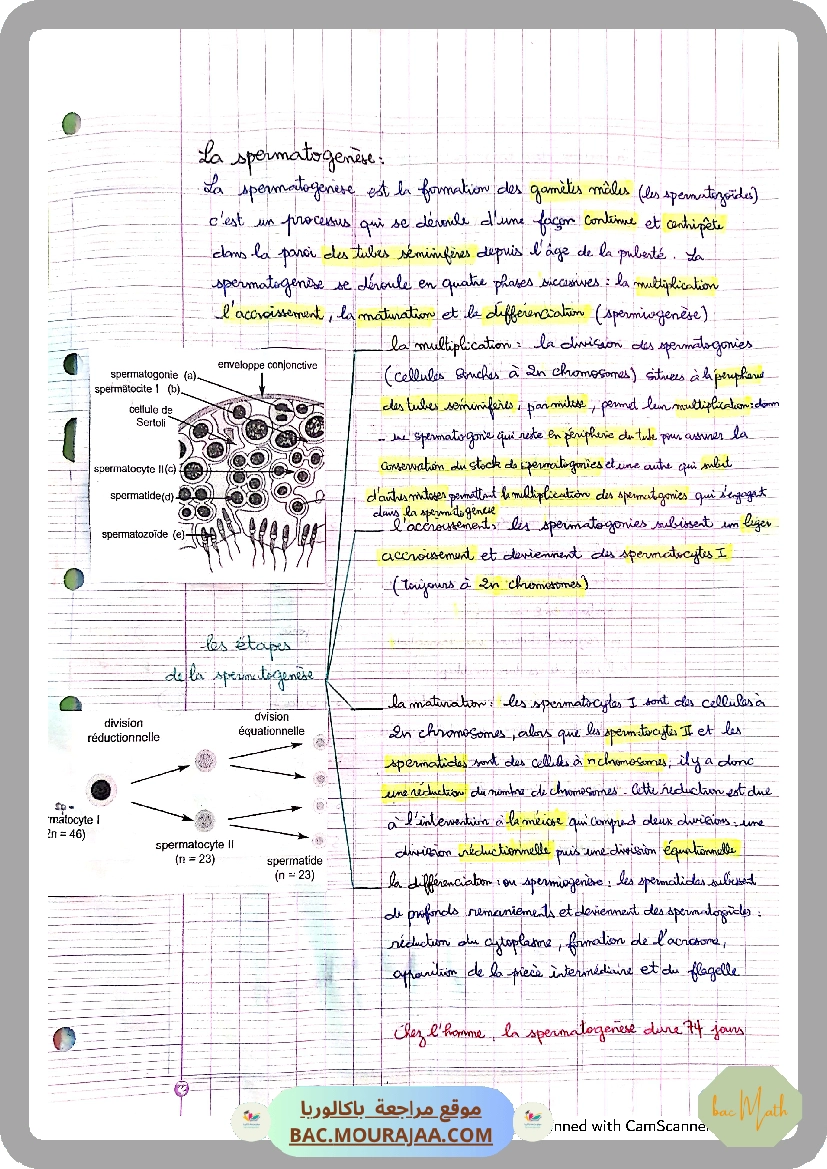 La spermatogenèse :
La spermatogenèse est la formation des gamètes mâles (les spermatozoïdes)
c'est un processus qui se déroule d'une façon continue et centripète
dans la paroi des tubes séminifères depuis l'âge de la puberté. La
spermatogenèse se déroule en quatre phases successives : la multiplication
l'accroissement, la maturation et la différenciation (spermiogenèse)
enveloppe conjonctive
spermatogonie (a)
spermatocite I (b)
cellule de
Sertoli
spermatocyte II (c)
spermatide (d)
spermatozoïde (e)
la multiplication : la division des spermatogonies
(cellules souches à 2n chromosomes) situées à la périphérie
des tubes séminifères, par mitose, permet leur multiplication : donn
une spermatogonie qui reste en périphérie du tube pour assurer la
conservation du stock de spermatogonies et une autre qui subit
d'autres mitoses permettant la multiplication des spermatogonies qui s'engagent
dans la spermatogenèse
l'accroissement : les spermatogonies subissent un léger
accroissement et deviennent des spermatocytes I
(Toujours à 2n chromosomes)
les étapes
de la spermatogenèse
la maturation : les spermatocytes I sont des cellules à
2n chromosomes, alors que les spermatocytes II et les
spermatides sont des cellules à n chromosomes, il y a donc
une réduction du nombre de chromosomes. Cette réduction est due
à l'intervention à la méiose qui comprend deux divisions : une
division réductionnelle puis une division équationnelle
division
réductionnelle
dvision
équationnelle
sp-
rmatocyte I
2n = 46)
spermatocyte II
(n = 23)
spermatide
(n = 23)
la différenciation : ou spermiogenèse : les spermatides subissent
de profonds remaniements et deviennent des spermatozoïdes :
réduction du cytoplasme, formation de l'acrosome,
apparition de la pièce intermédiaire et du flagelle
Chez l'homme, la spermatogenèse dure 74 jours
موقع مراجعة باكالوريا
BAC.MOURAJAA.COM
nned with CamScanner
bac Math